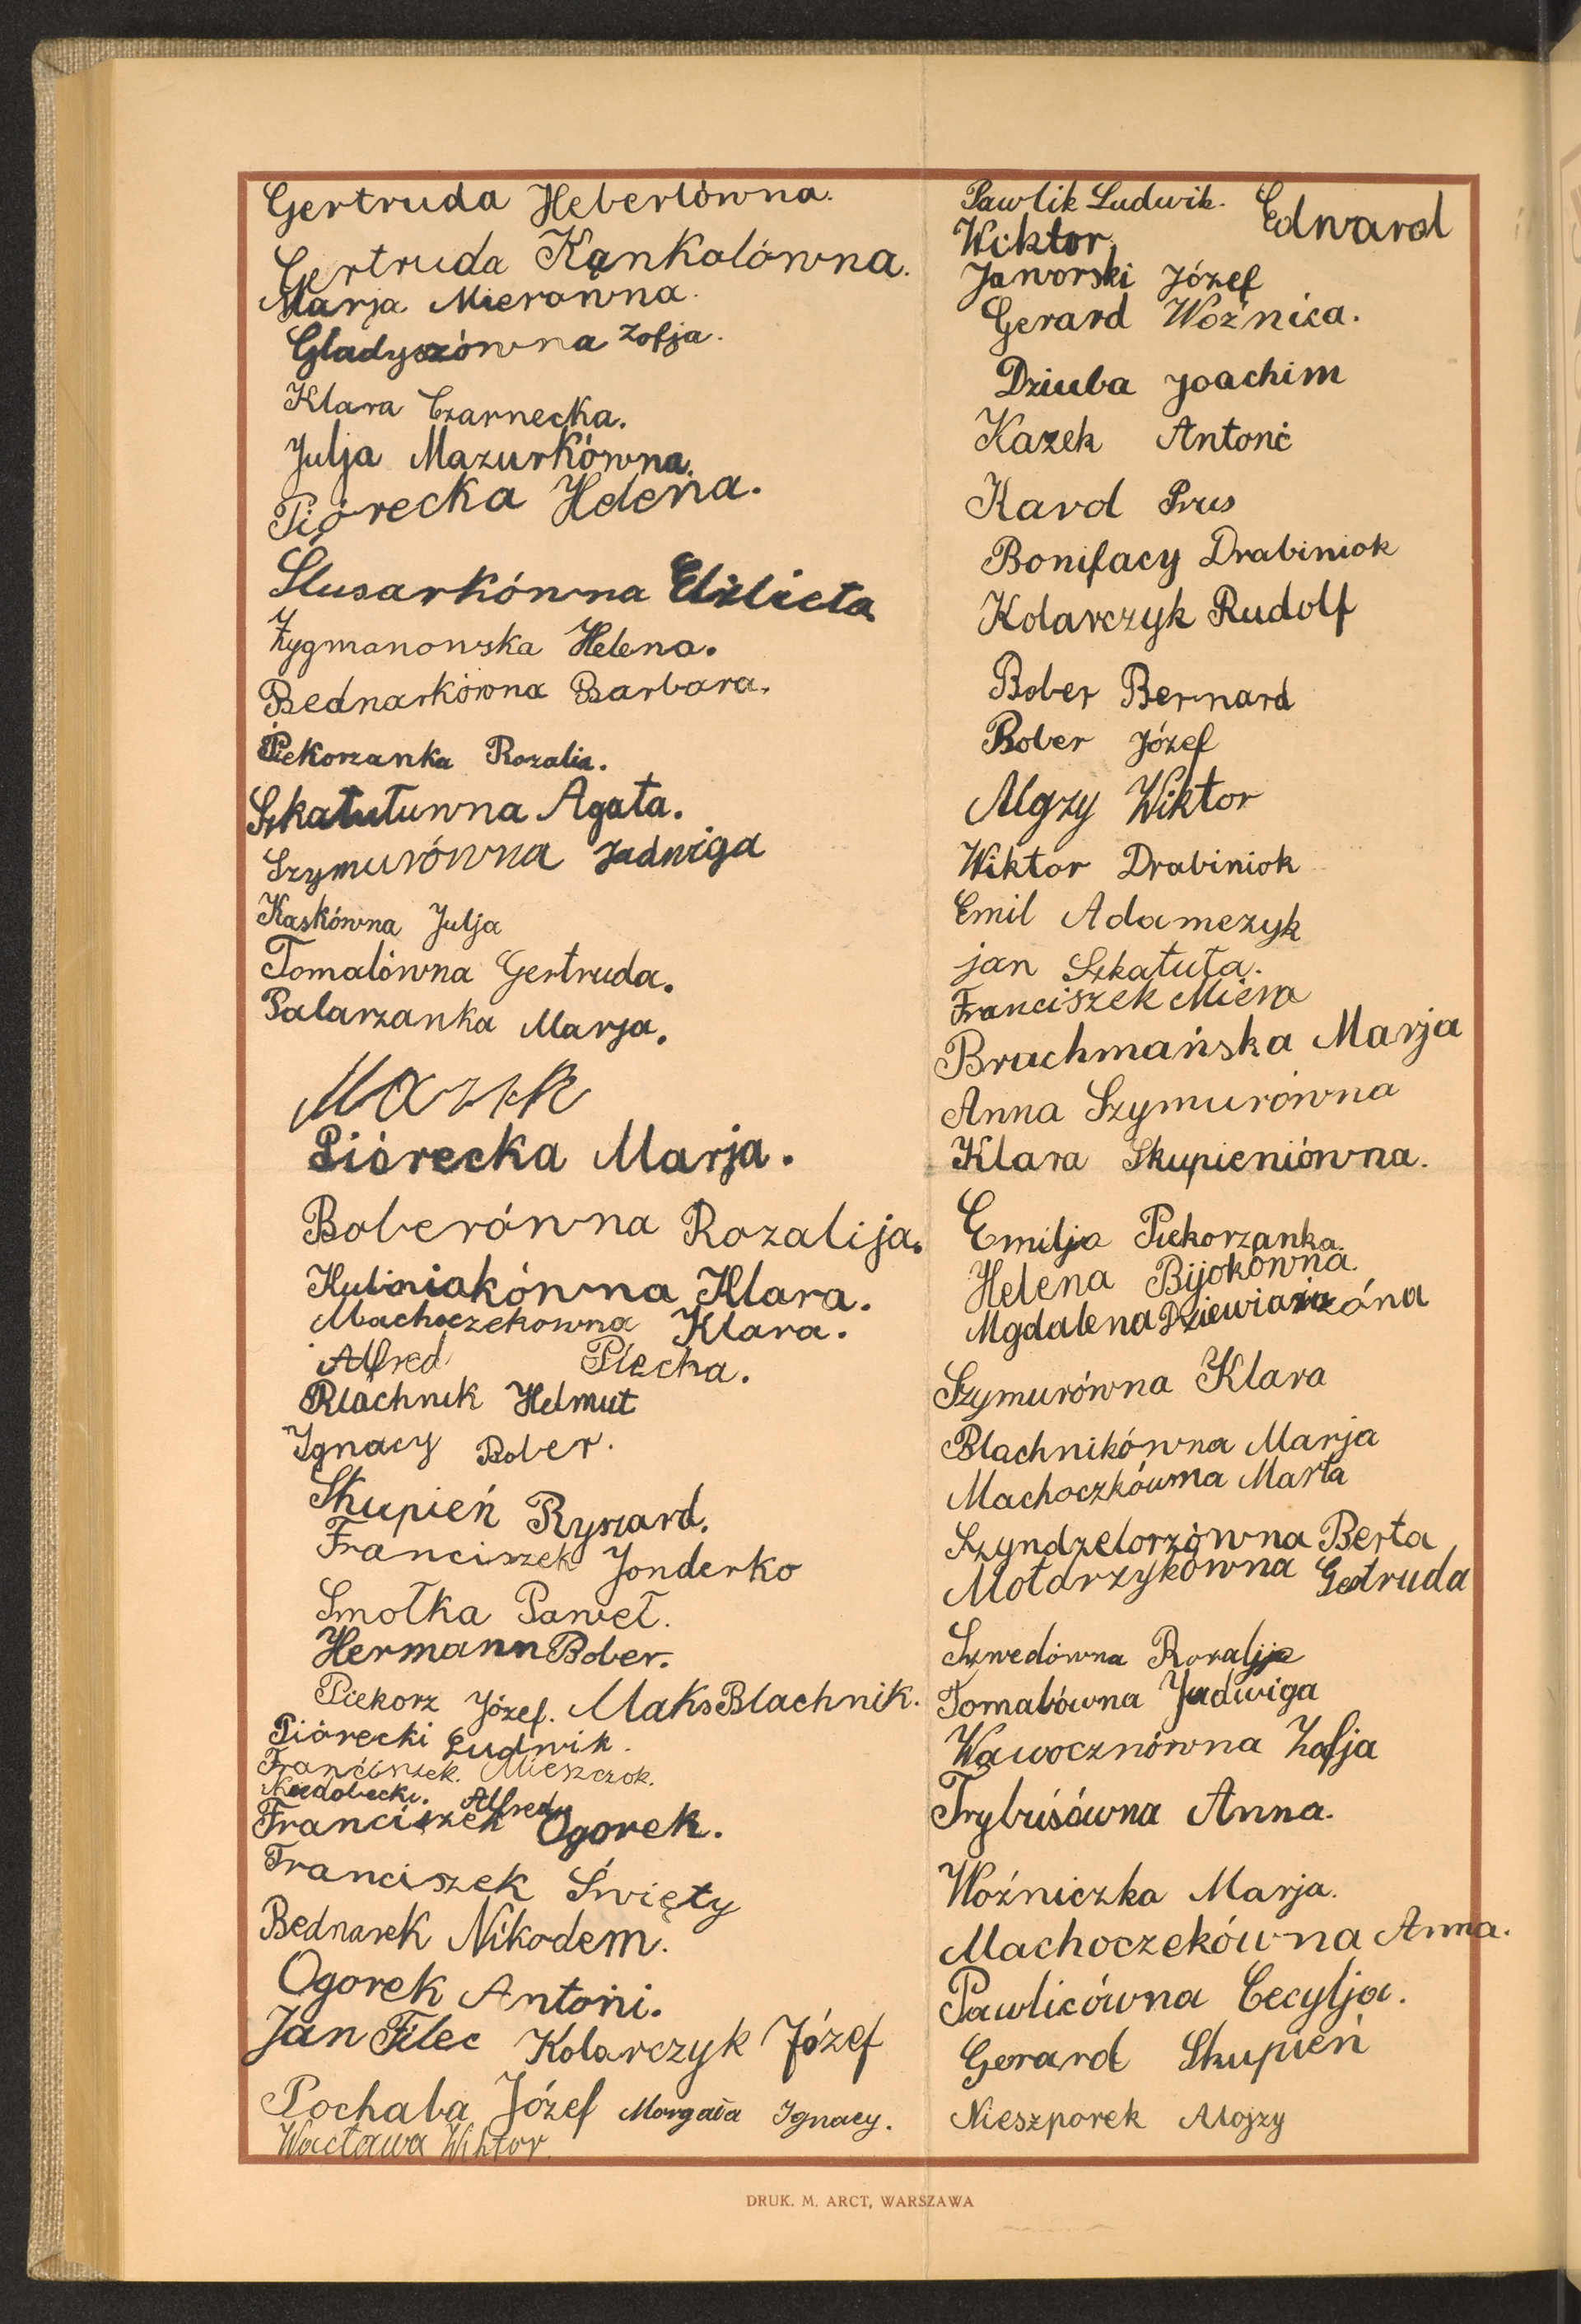 Gertruda Heberlówna.
Gertruda Kąnkolówna.
Marja Mierówna.
Gladyszówna Zofja.
Klara Czarnecka.
Julja Mazurkówna.
Piórecka Helena.
Ślusarkówna Elżbieta
Zygmanowska Helena.
Bednarkówna Barbara.
Piekorzanka Rozalia.
Szkatułuwna Agata.
Szymurówna Jadwiga
Kaskówna Julja
Tomalówna Gertruda.
Palarzanka Marja.
Piórecka Marja.
Boberówna Rozalija.
Kubiniakówna Klara.
Machoczekowna Klara.
Alfred Plecha.
Blachnik Helmut
Ignacy Bober.
Skupień Ryszard.
Franciszek Jonderko
Smołka Paweł.
Hermann Bober.
Piekorz Józef. Maks Blachnik.
Piórecki Ludwik.
Franciszek. Mieszczok.
Niedobecki. Alfred
Franciszek Ogorek.
Franciszek Święty
Bednarek Nikodem.
Ogorek Antoni.
Jan Filec Kolarczyk Józef
Pochaba Józef Morgała Ignacy.
Wacława Wiktor.
Pawlik Ludwik. Edward
Wiktor,
Jaworski Józef
Gerard Woźnica.
Dziuba Joachim
Kazek Antoni
Karol Prus
Bonifacy Drabiniok
Kolarczyk Rudolf
Bober Bernard
Bober Józef
Algzy Wiktor
Wiktor Drabiniok
Emil Adamczyk
jan Szkatuła.
Franciszek Miera
Brachmańska Marja
Anna Szymurówna
Klara Skupieniówna.
Emilja Piekorzanka.
Helena Bijokówna.
Mgdalena
Szymurówna Klara
Blachnikówna Marja
Machoczkówna Marta
Szyndzelorzówna Berta
Motarzykówna Gertruda
Szwedówna Rozalija
Tomalówna Jadwiga
Wawocznówna Zofja
Trybusówna Anna.
Woźniczka Marja.
Machoczekówna Anna.
Pawlicówna Cecylja.
Gerard Skupień
Nieszporek Alojzy
DRUK. M. ARCT, WARSZAWA